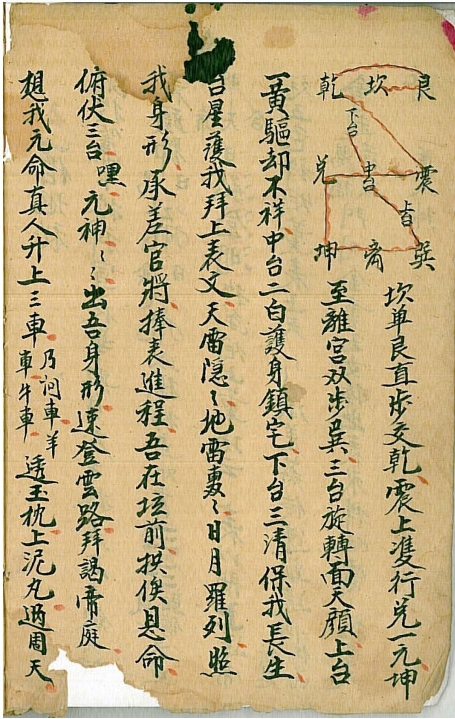 艮 坎 乾
下台
震 中台 兑
上台
巽 离 坤
坎单艮直步交乾震上双行兑一元坤
至離宫双步巽三台旋轉面天顔上台
一黄驅却不祥中台二白護身鎮宅下台三清保我長生
台星護我拜上表文天雷隐〻地雷轰〻日月羅列照
我身形承差官將捧表進程吾在坛前拱俟恩命
俯伏三台嘿元神〻〻出吾身形速登雲路拜謁帝庭
想我元命真人升上三車乃河車羊車牛車透玉枕上泥丸過周天